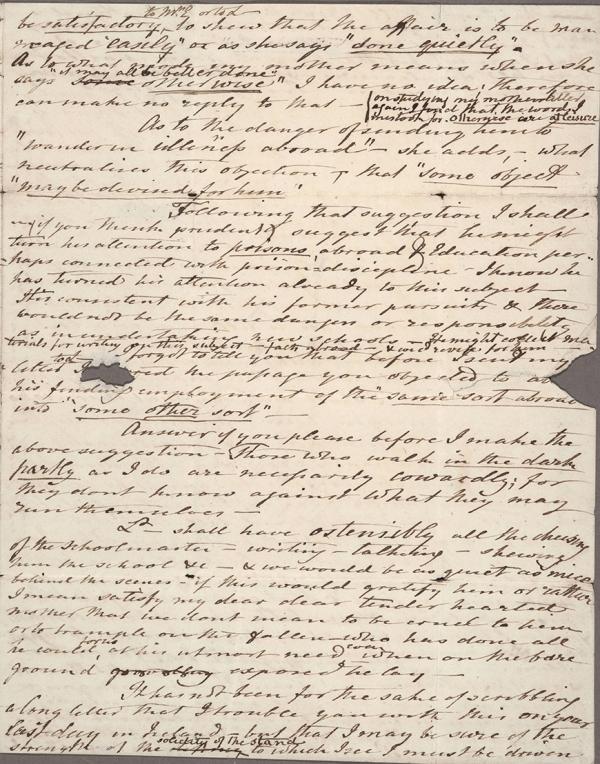 to Mr E or to L
be satisfactory, to shew that the affair is to be man
-aged "easily" or as she says "done quietly".
As to what my mother means when she
says "it may all be better done otherwise" I have no idea; therefore
can make no reply to that —
on studying my mother's letter
again I find that the words I
mistook for otherwise are at leisure
As to the danger of sending him to
"wander in illness abroad" — she adds, — what
neutralises this objection, that "some object
may be devised for him"
Following that suggestion I shall
— if you think prudent suggest that he might
turn his attention to prisons, abroad & Education per-
haps connected with prison discipline — I know he
has turned his attention already to this subject
It is consistent with his former pursuits & there
would not be the same danger or responsibility
as in undertaking new schools — He might collect ma
terials for writing on this subject — & we revise for him
I forgot to tell you that before sending my
letter to L I the passage you objected to as
his finding employment of the "same sort abroad
into "some other sort" —
Answer if you please before I make the
above suggestion — Those who walk in the dark
partly as I do are necessarily cowardly; for
they dont know against what they may
run themselves —
L — shall have ostensibly all the
of the schoolmaster — writing — talking — shewing
him the school &c — & we would be as quiet as mice
behind the scenes — if this would gratify him or rather
I mean satisfy my dear dear tender hearted
mother that we dont mean to be cruel to him
or to trample on the fallen — who has done all
he could for us at his utmost need when on the bare
ground exposed he lay —
It has not been for the sake of scribbling
a long letter that I trouble you with this on your
last day in Ireland — but that I may be sure of the
solidity of the stand
strength of the to which I see I must be driven